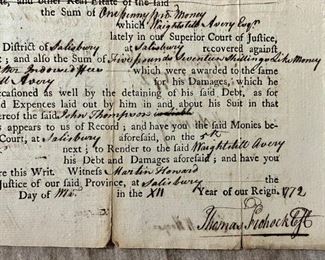 and other Real Estate of the said
the Sum of One penny Prock Money
which Waightstill Avery Esqr
lately in our Superior Court of Justice,
District of Salisbury at Salisbury recovered against
; and also the Sum of Five pounds Seventeen Shillings Like Money
were awarded to the said
Avery which he
occasioned as well by the detaining of his said Debt, as for
and Expences laid out by him in and about his Suit in that
whereof the said John Thompson
as appears to us of Record; and have you the said Monies be-
Court, at Salisbury aforesaid, on the 5th
next; to Render to the said Waightstill Avery
his Debt and Damages aforesaid; and have you
there this Writ. Witness Martin Howard
Justice of our said Province, at Salisbury the
Day of in the XII Year of our Reign. 1772
Thomas Frohock Clk